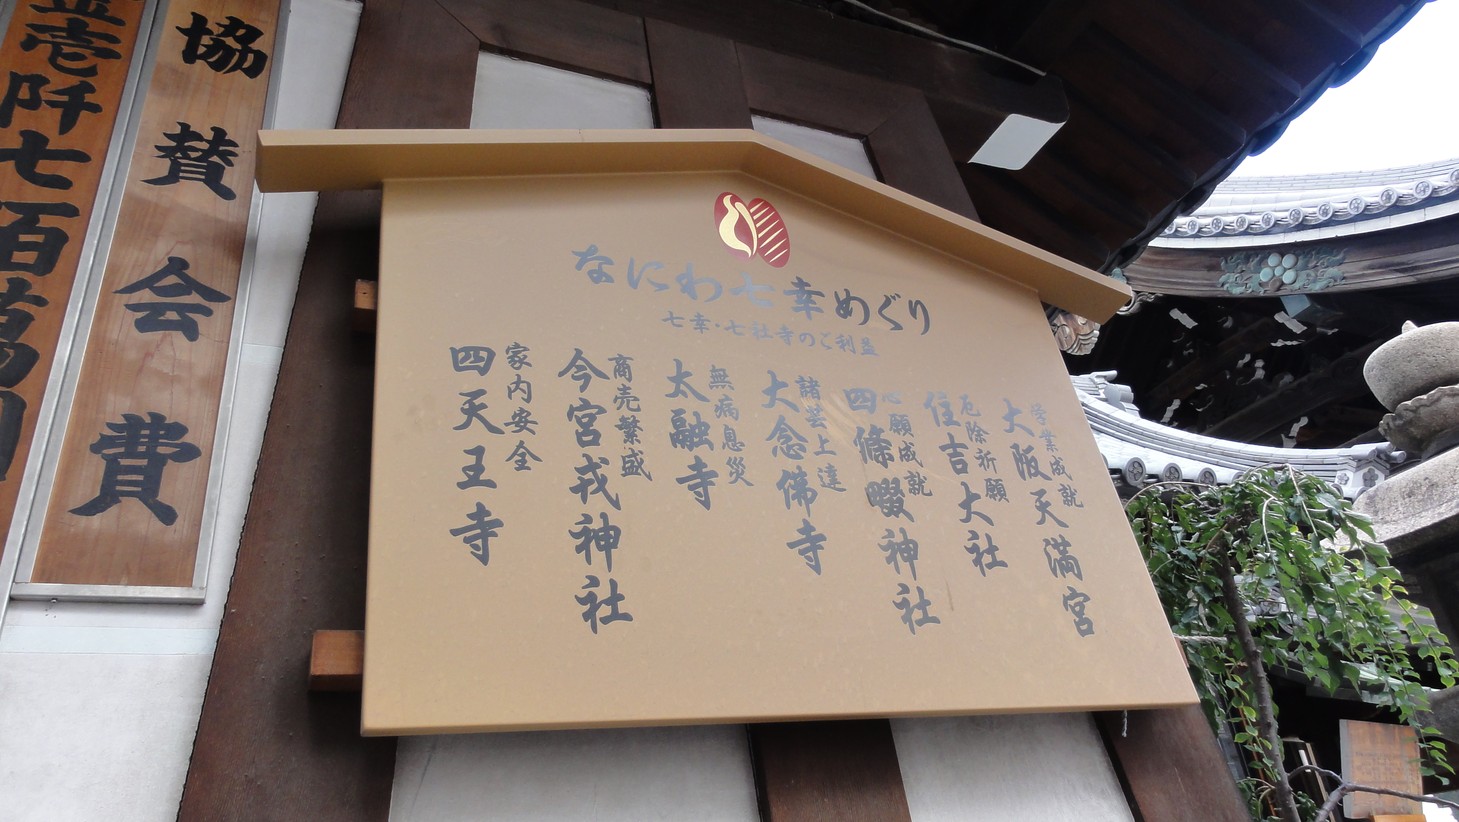 なにわ七幸めぐり
七幸・七社寺のご利益
学業成就
大阪天満宮
厄除祈願
住吉大社
心願成就
四條畷神社
諸芸上達
大念佛寺
無病息災
太融寺
商売繁盛
今宮戎神社
家内安全
四天王寺
協賛会費
金壱阡七百萬円